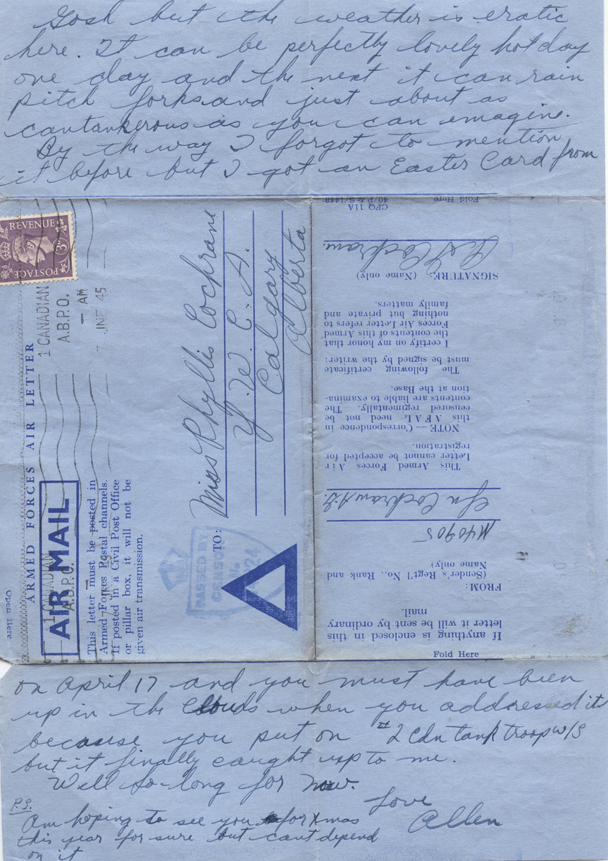 Gosh but the weather is eratic
here. It can be perfectly lovely hot day
one day and the next it can rain
pitch forks and just about as
cantankerous as you can emagine.
By the way I forgot to mention
it before but I got an Easter Card from
REVENUE
3D
POSTAGE
1 CANADIAN
A.B.P.O.
- AM
45
ARMED FORCES AIR LETTER
AIR MAIL
A.B.P.O.
This letter must be posted in
Armed Forces Postal channels.
If posted in a Civil Post Office
or pillar box, it will not be
given air transmission.
Open Here
TO:
Miss Phyllis Cochrane
Y. W. C. A.
Calgary
Alberta
PASSED BY
CENSOR
If anything is enclosed in this
letter it will be sent by ordinary
mail.
FROM:
(Sender's Regt'l No., Rank and
Name only)
M40405
Gnr Cochran A.S.
This Armed Forces Air
Letter cannot be accepted for
registration.
NOTE—Correspondence in
this A F A L need not be
censored regimentally. The
contents are liable to examina-
tion at the Base.
The following certificate
must be signed by the writer:
I certify on my honor that
the contents of this Armed
Forces Air Letter refers to
nothing but private and
family matters.
SIGNATURE: (Name only)
Cochran
CPO 11A
Fold Here
Fold Here
on April 17 and you must have been
up in the clouds when you addressed it
because you put on #2 Cdn tank troop w/s
but it finally caught up to me.
Well so-long for now.
Love
Allen
P.S.
Am hoping to see you for Xmas
this year for sure but cant depend
on it